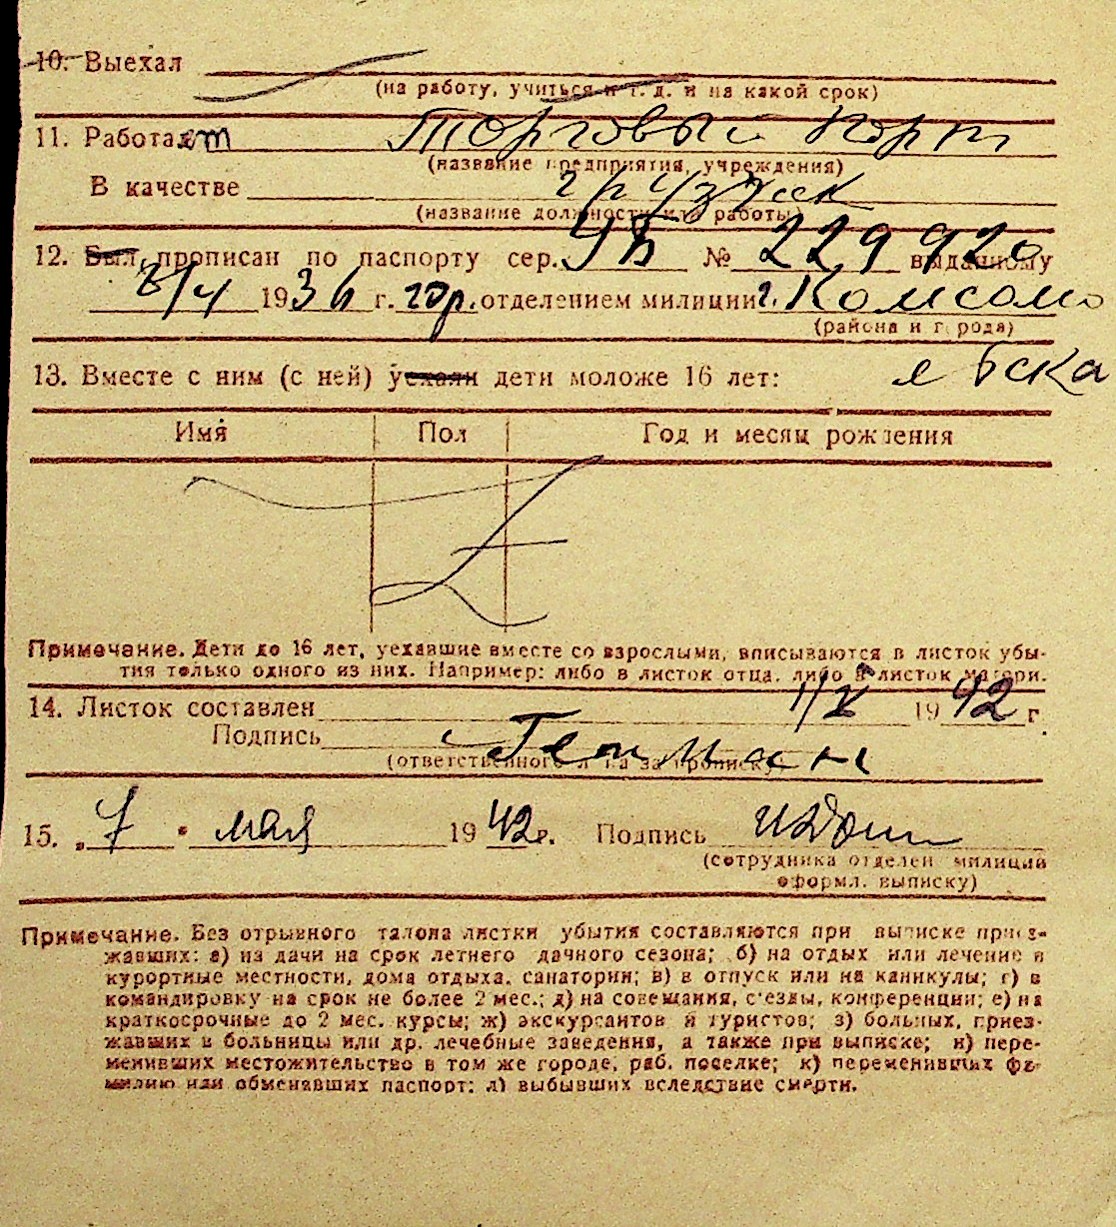 10. Выехал
(на работу, учиться и т. д. и на какой срок)
11. Работает Торговый порт
(название предприятия, учреждения)
В качестве грузчик
(название должности или работы)
12. Был прописан по паспорту сер. УВ № 229920 выданному
8/4 1936 г. гор. отделением милиции г. Комсомо
(района и города)
льска
13. Вместе с ним (с ней) уехали дети моложе 16 лет:
Имя Пол Год и месяц рождения
Примечание. Дети до 16 лет, уехавшие вместе со взрослыми, вписываются в листок убы-
тия только одного из них. Например: либо в листок отца, либо в листок матери.
14. Листок составлен 1/V 1942 г.
Подпись
(ответственного лица за прописку)
15. „7" мая 1942 г. Подпись
(сотрудника отделен. милиции
оформл. выписку)
Примечание. Без отрывного талона листки убытия составляются при выписке приез-
жавших: а) на дачи на срок летнего дачного сезона; б) на отдых или лечение в
курортные местности, дома отдыха, санатории; в) в отпуск или на каникулы; г) в
командировку на срок не более 2 мес.; д) на совещания, с'езды, конференции; е) на
краткосрочные до 2 мес. курсы; ж) экскурсантов и туристов; з) больных, приез-
жавших в больницы или др. лечебные заведения, а также при выписке; и) пере-
менивших местожительство в том же городе, раб. поселке; к) переменивших фа-
милию или обменявших паспорт; л) выбывших вследствие смерти.